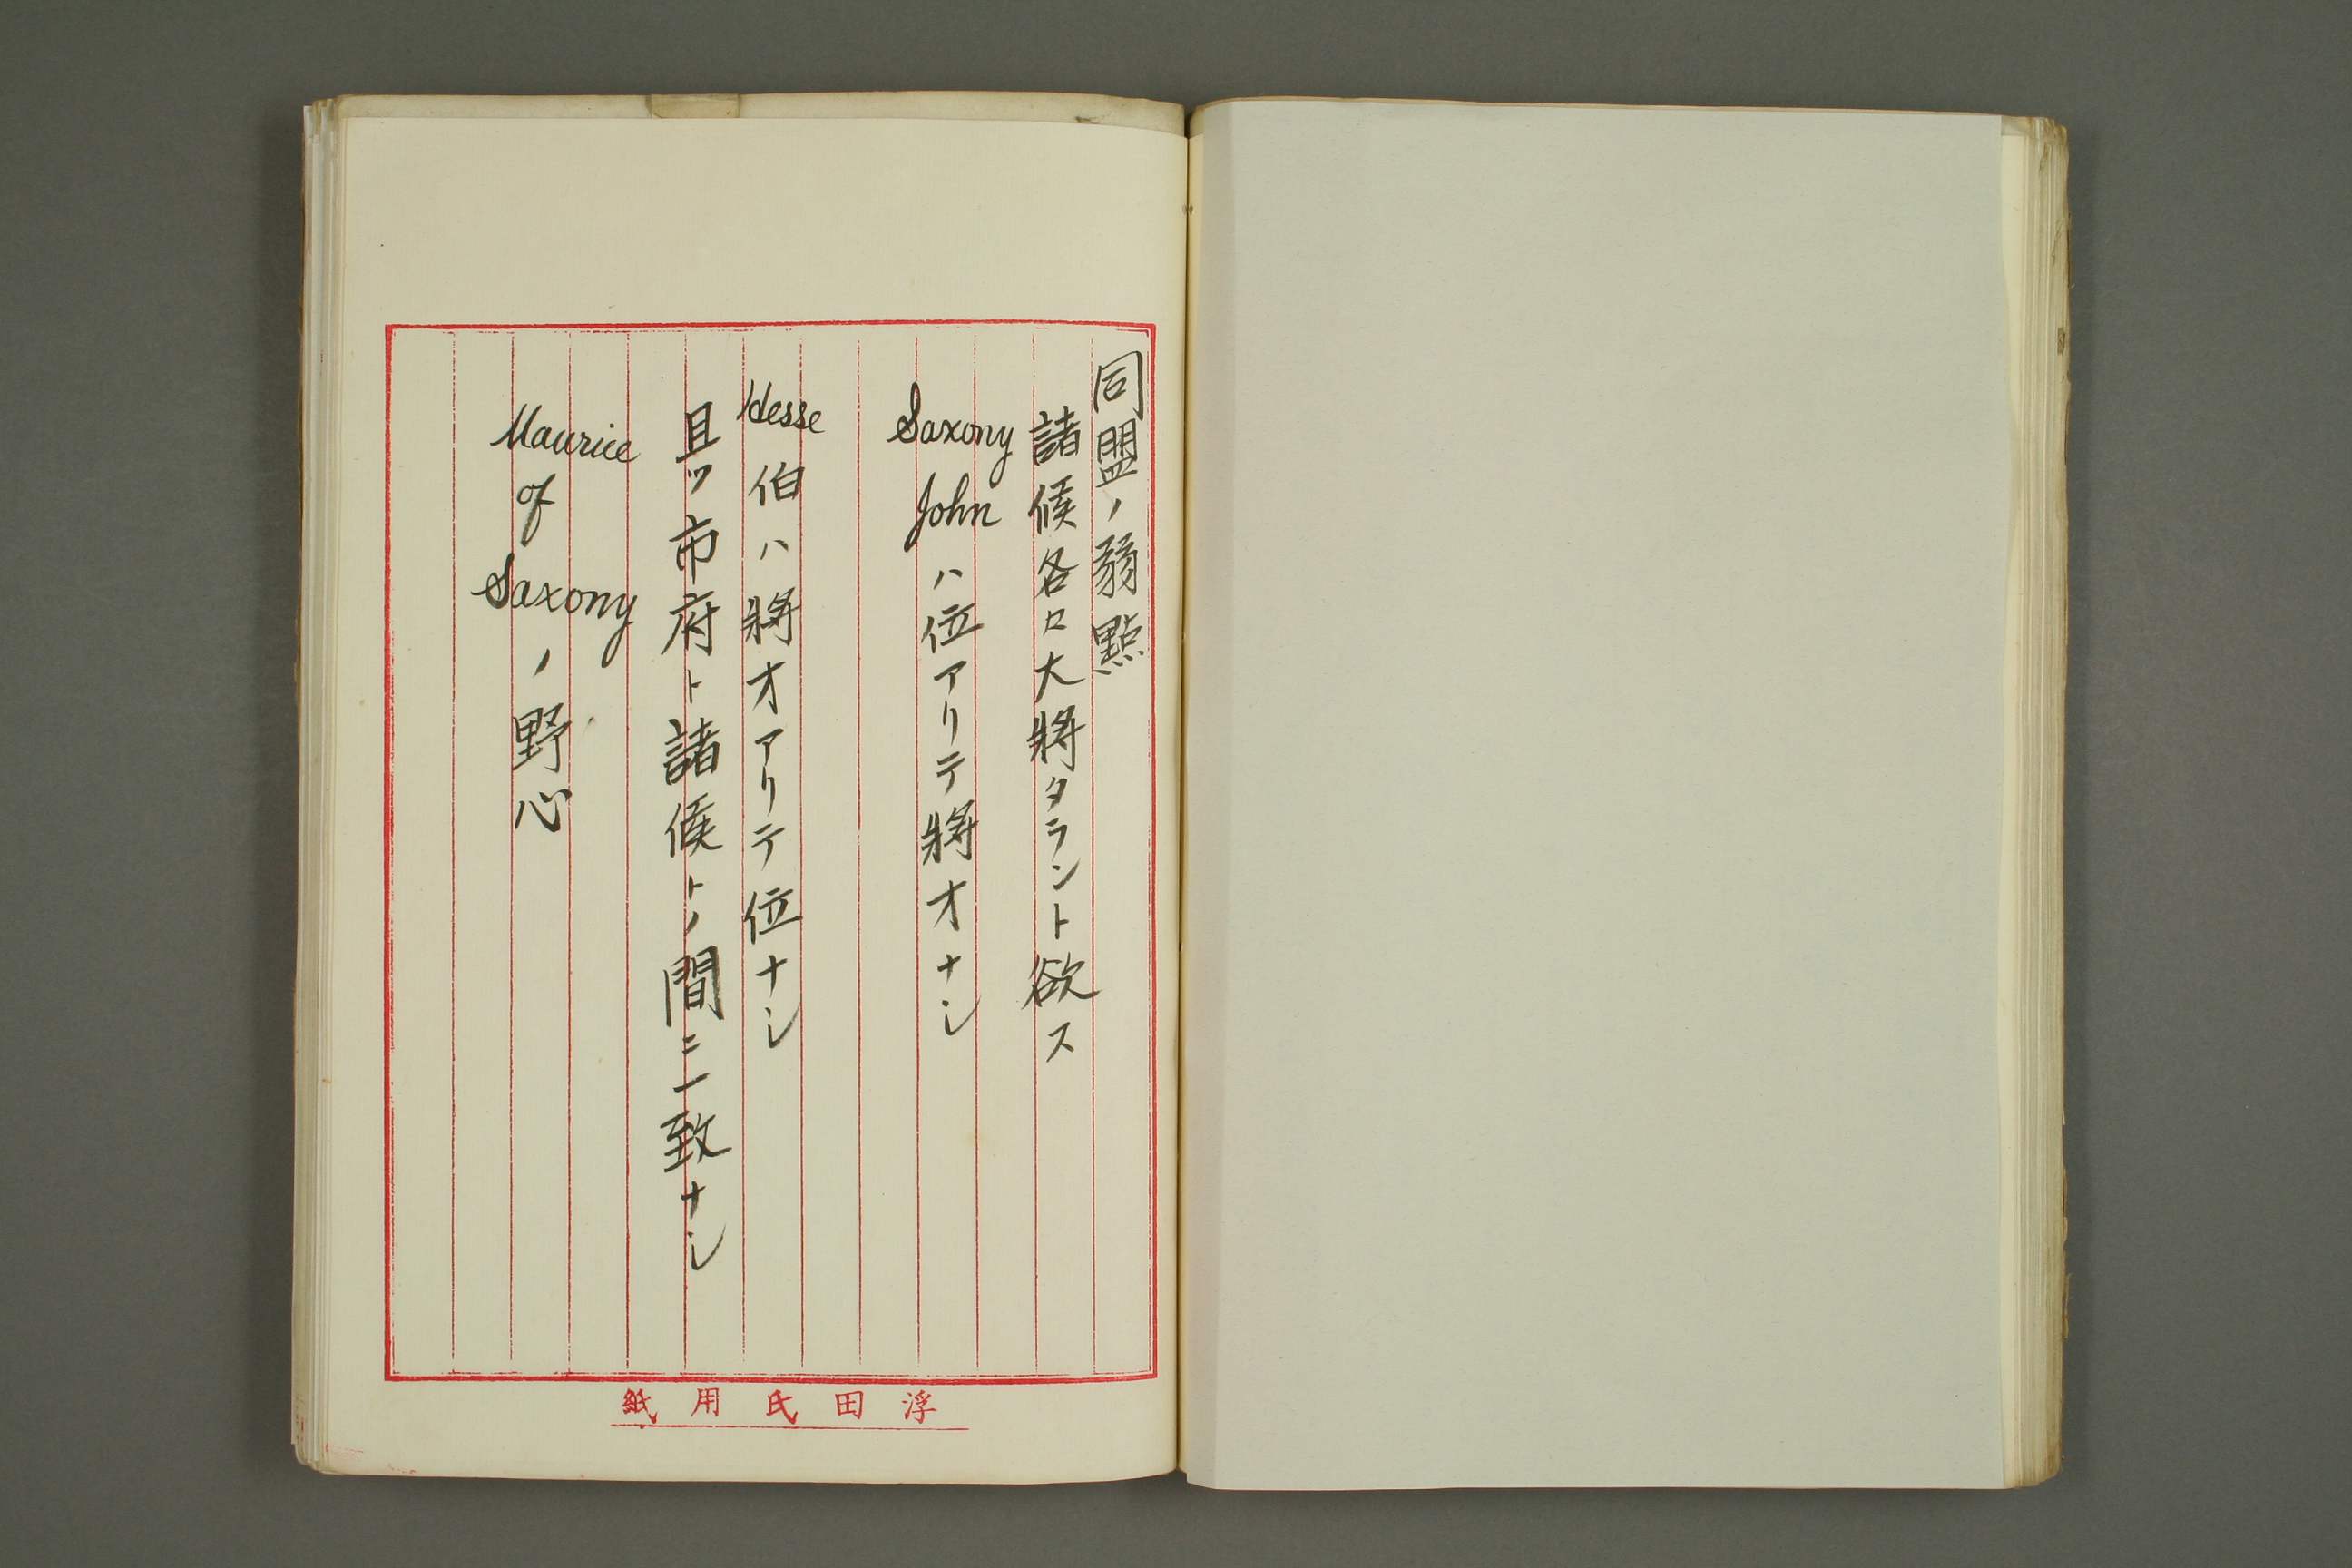 同盟ノ弱點
諸候各ロ大將タラント欲ス
Saxony John ハ位アリテ將才ナシ
Hesse 伯ハ將才アリテ位ナシ
且ツ市府ト諸候トノ間ニ一致ナシ
Maurice of Saxony ノ野心
浮田氏用紙